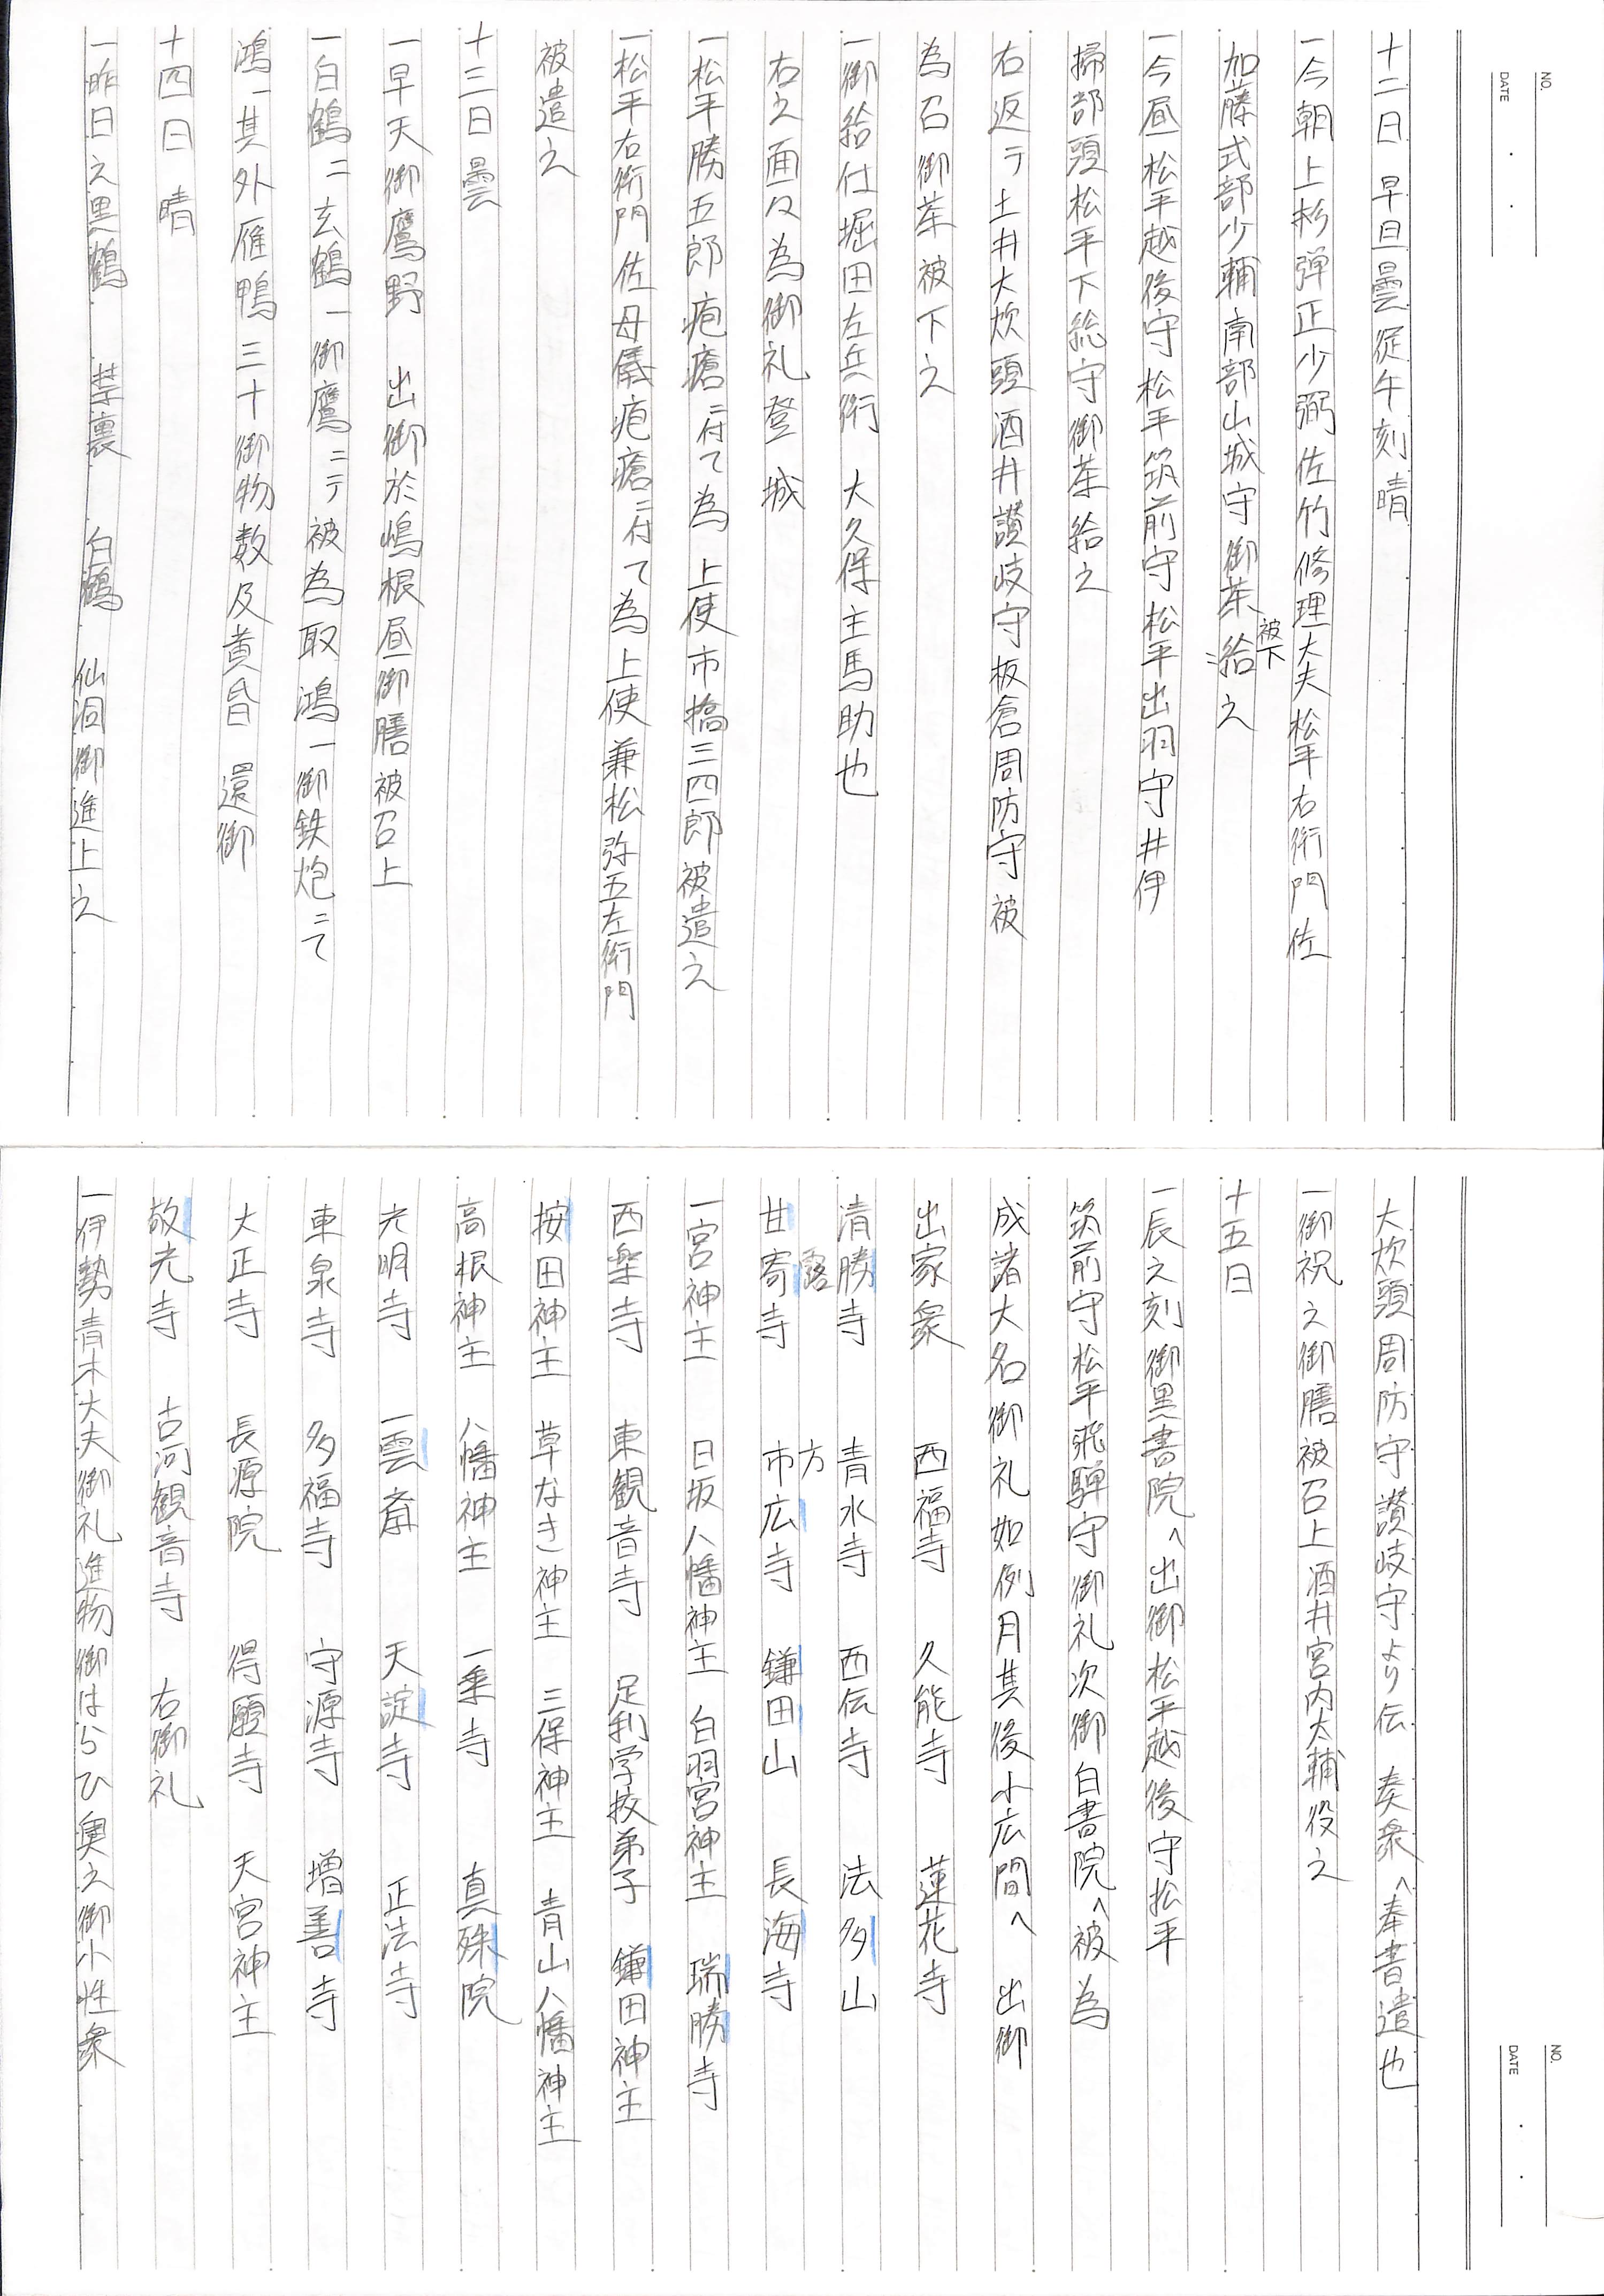 NO.
DATE
十二日 早旦曇従午刻晴
一今朝上杉弾正少弼佐竹修理大夫松平右衛門佐
加藤式部少輔南部山城守御茶給之
被下
一今昼松平越後守松平筑前守松平出羽守井伊
掃部頭松平下総守御茶給之
右返テ土井大炊頭酒井讃岐守板倉周防守被
為召御茶被下之
一御給仕堀田左兵衛 大久保主馬助也
右之面々為御礼登城
一松平勝五郎疱瘡ニ付て為 上使市橋三四郎被遣之
一松平右衛門佐母儀疱瘡ニ付て為上使兼松弥五左衛門
被遣之
十三日曇
一早天御鷹野 出御於嶋根昼御膳被召上
一白鶴二玄鶴一御鷹ニテ被為取鴻一御鉄炮ニて
鴻一其外雁鴨三十御物数及黄昏 還御
十四日 晴
一昨日之黒鶴 禁裏 白鶴 仙洞御進上之
NO.
DATE
大炊頭周防守讃岐守より伝 奏衆へ奉書遣也
一御祝之御膳被召上酒井宮内太輔役之
十五日
一辰之刻御黒書院へ出御松平越後守松平
筑前守松平飛騨守御礼次御白書院へ被為
成諸大名御礼如例月其後小広間へ 出御
出家衆 西福寺 久能寺 蓮花寺
清勝寺 青水寺 西伝寺 法多山
露 方
甘寄寺 市広寺 鎌田山 長海寺
一宮神主 日坂八幡神主 白羽宮神主 瑞勝寺
西楽寺 東観音寺 足利学校弟子 鎌田神主
按田神主 草なき神主 三保神主 青山八幡神主
高根神主 八幡神主 一乗寺 真珠院
光明寺 一雲斎 天諚寺 正法寺
東泉寺 多福寺 守源寺 増善寺
大正寺 長源院 得願寺 天宮神主
敬光寺 古河観音寺 右御礼
一伊勢青木大夫御礼進物御はらひ奥之御小性衆